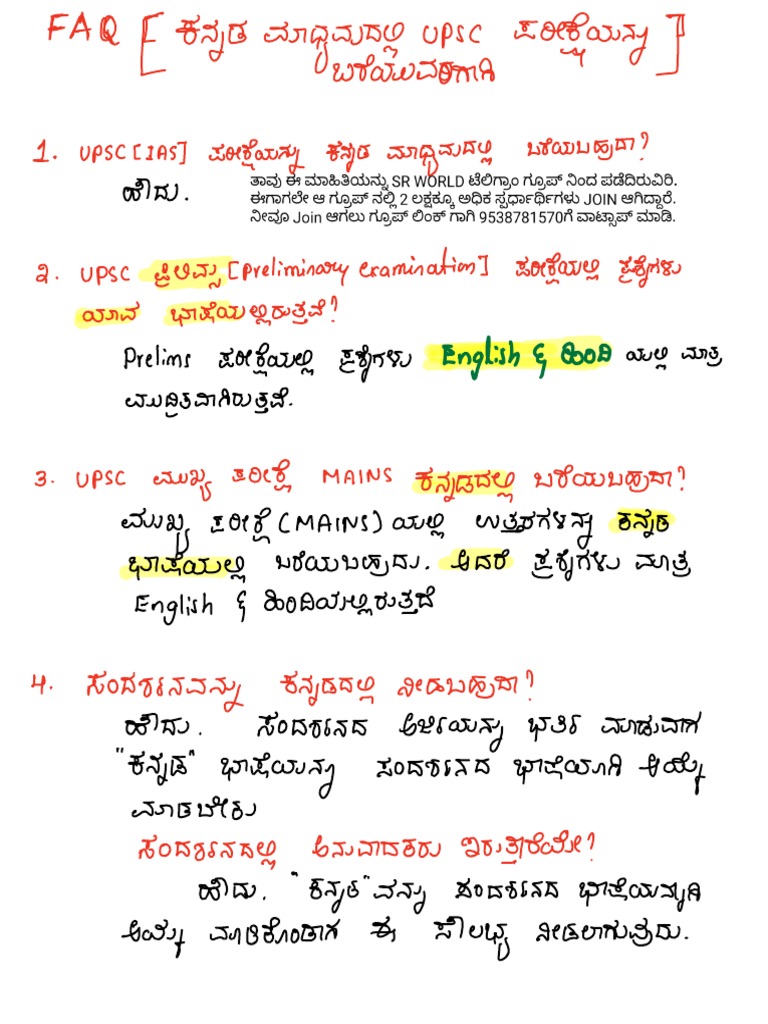 FAQ [ ಕನ್ನಡ ಮಾಧ್ಯಮದಲ್ಲಿ UPSC ಪರೀಕ್ಷೆಯನ್ನು
ಬರೆಯುವವರಿಗಾಗಿ ]
1. UPSC [IAS] ಪರೀಕ್ಷೆಯನ್ನು ಕನ್ನಡ ಮಾಧ್ಯಮದಲ್ಲಿ ಬರೆಯಬಹುದಾ?
ಹೌದು.
ತಾವು ಈ ಮಾಹಿತಿಯನ್ನು SR WORLD ಟೆಲಿಗ್ರಾಂ ಗ್ರೂಪ್ ನಿಂದ ಪಡೆದಿರುವಿರಿ.
ಈಗಾಗಲೇ ಆ ಗ್ರೂಪ್ ನಲ್ಲಿ 2 ಲಕ್ಷಕ್ಕೂ ಅಧಿಕ ಸ್ಪರ್ಧಾರ್ಥಿಗಳು JOIN ಆಗಿದ್ದಾರೆ.
ನೀವೂ Join ಆಗಲು ಗ್ರೂಪ್ ಲಿಂಕ್ ಗಾಗಿ 9538781570ಗೆ ವಾಟ್ಸಾಪ್ ಮಾಡಿ.
2. UPSC ಪ್ರಿಲಿಮ್ಸ [Preliminary examination] ಪರೀಕ್ಷೆಯಲ್ಲಿ ಪ್ರಶ್ನೆಗಳು
ಯಾವ ಭಾಷೆಯಲ್ಲಿರುತ್ತವೆ?
Prelims ಪರೀಕ್ಷೆಯಲ್ಲಿ ಪ್ರಶ್ನೆಗಳು English & ಹಿಂದಿ ಯಲ್ಲಿ ಮಾತ್ರ
ಮುದ್ರಿತವಾಗಿರುತ್ತವೆ.
3. UPSC ಮುಖ್ಯ ಪರೀಕ್ಷೆ MAINS ಕನ್ನಡದಲ್ಲಿ ಬರೆಯಬಹುದಾ?
ಮುಖ್ಯ ಪರೀಕ್ಷೆ (MAINS) ಯಲ್ಲಿ ಉತ್ತರಗಳನ್ನು ಕನ್ನಡ
ಭಾಷೆಯಲ್ಲಿ ಬರೆಯಬಹುದು. ಆದರೆ ಪ್ರಶ್ನೆಗಳು ಮಾತ್ರ
English & ಹಿಂದಿಯಲ್ಲಿರುತ್ತದೆ
4. ಸಂದರ್ಶನವನ್ನು ಕನ್ನಡದಲ್ಲಿ ನೀಡಬಹುದಾ?
ಹೌದು. ಸಂದರ್ಶನದ ಅರ್ಜಿಯನ್ನು ಭರ್ತಿ ಮಾಡುವಾಗ
"ಕನ್ನಡ" ಭಾಷೆಯನ್ನು ಸಂದರ್ಶನದ ಭಾಷೆಯಾಗಿ ಆಯ್ಕೆ
ಮಾಡಬೇಕು
ಸಂದರ್ಶನದಲ್ಲಿ ಅನುವಾದಕರು ಇರುತ್ತಾರೆಯೇ?
ಹೌದು. "ಕನ್ನಡ" ವನ್ನು ಸಂದರ್ಶನದ ಭಾಷೆಯನ್ನಾಗಿ
ಆಯ್ಕೆ ಮಾಡಿಕೊಂಡಾಗ ಈ ಸೌಲಭ್ಯ ನೀಡಲಾಗುವುದು.